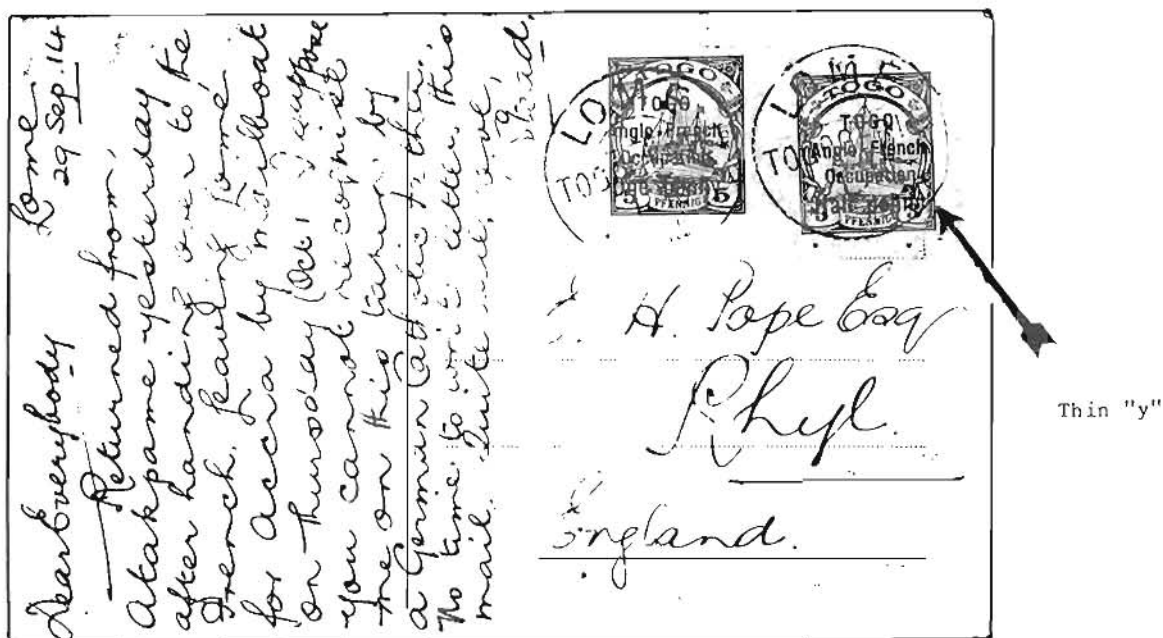 Lome
29 Sep. 14
Dear Everybody
Returned from
Atakpame yesterday
after handing over to the
French. Leaving Lome
for Accra by mailboat
on Thursday (Oct 1) I suppose
you cannot recognise
me on this taken by
a German Catholic father
No time to write letters this
mail. Quite well, love,
LOME
TOGO
TOGO
TOGO
Anglo-French
Occupation
One Penny
5 PFENNIG 5
LOME
TO
TOGO
TOGO
Anglo-French
Occupation
Half penny
3 PFENNIG 3
H. Pope Esq
Rhyl.
England.
Thin "y"